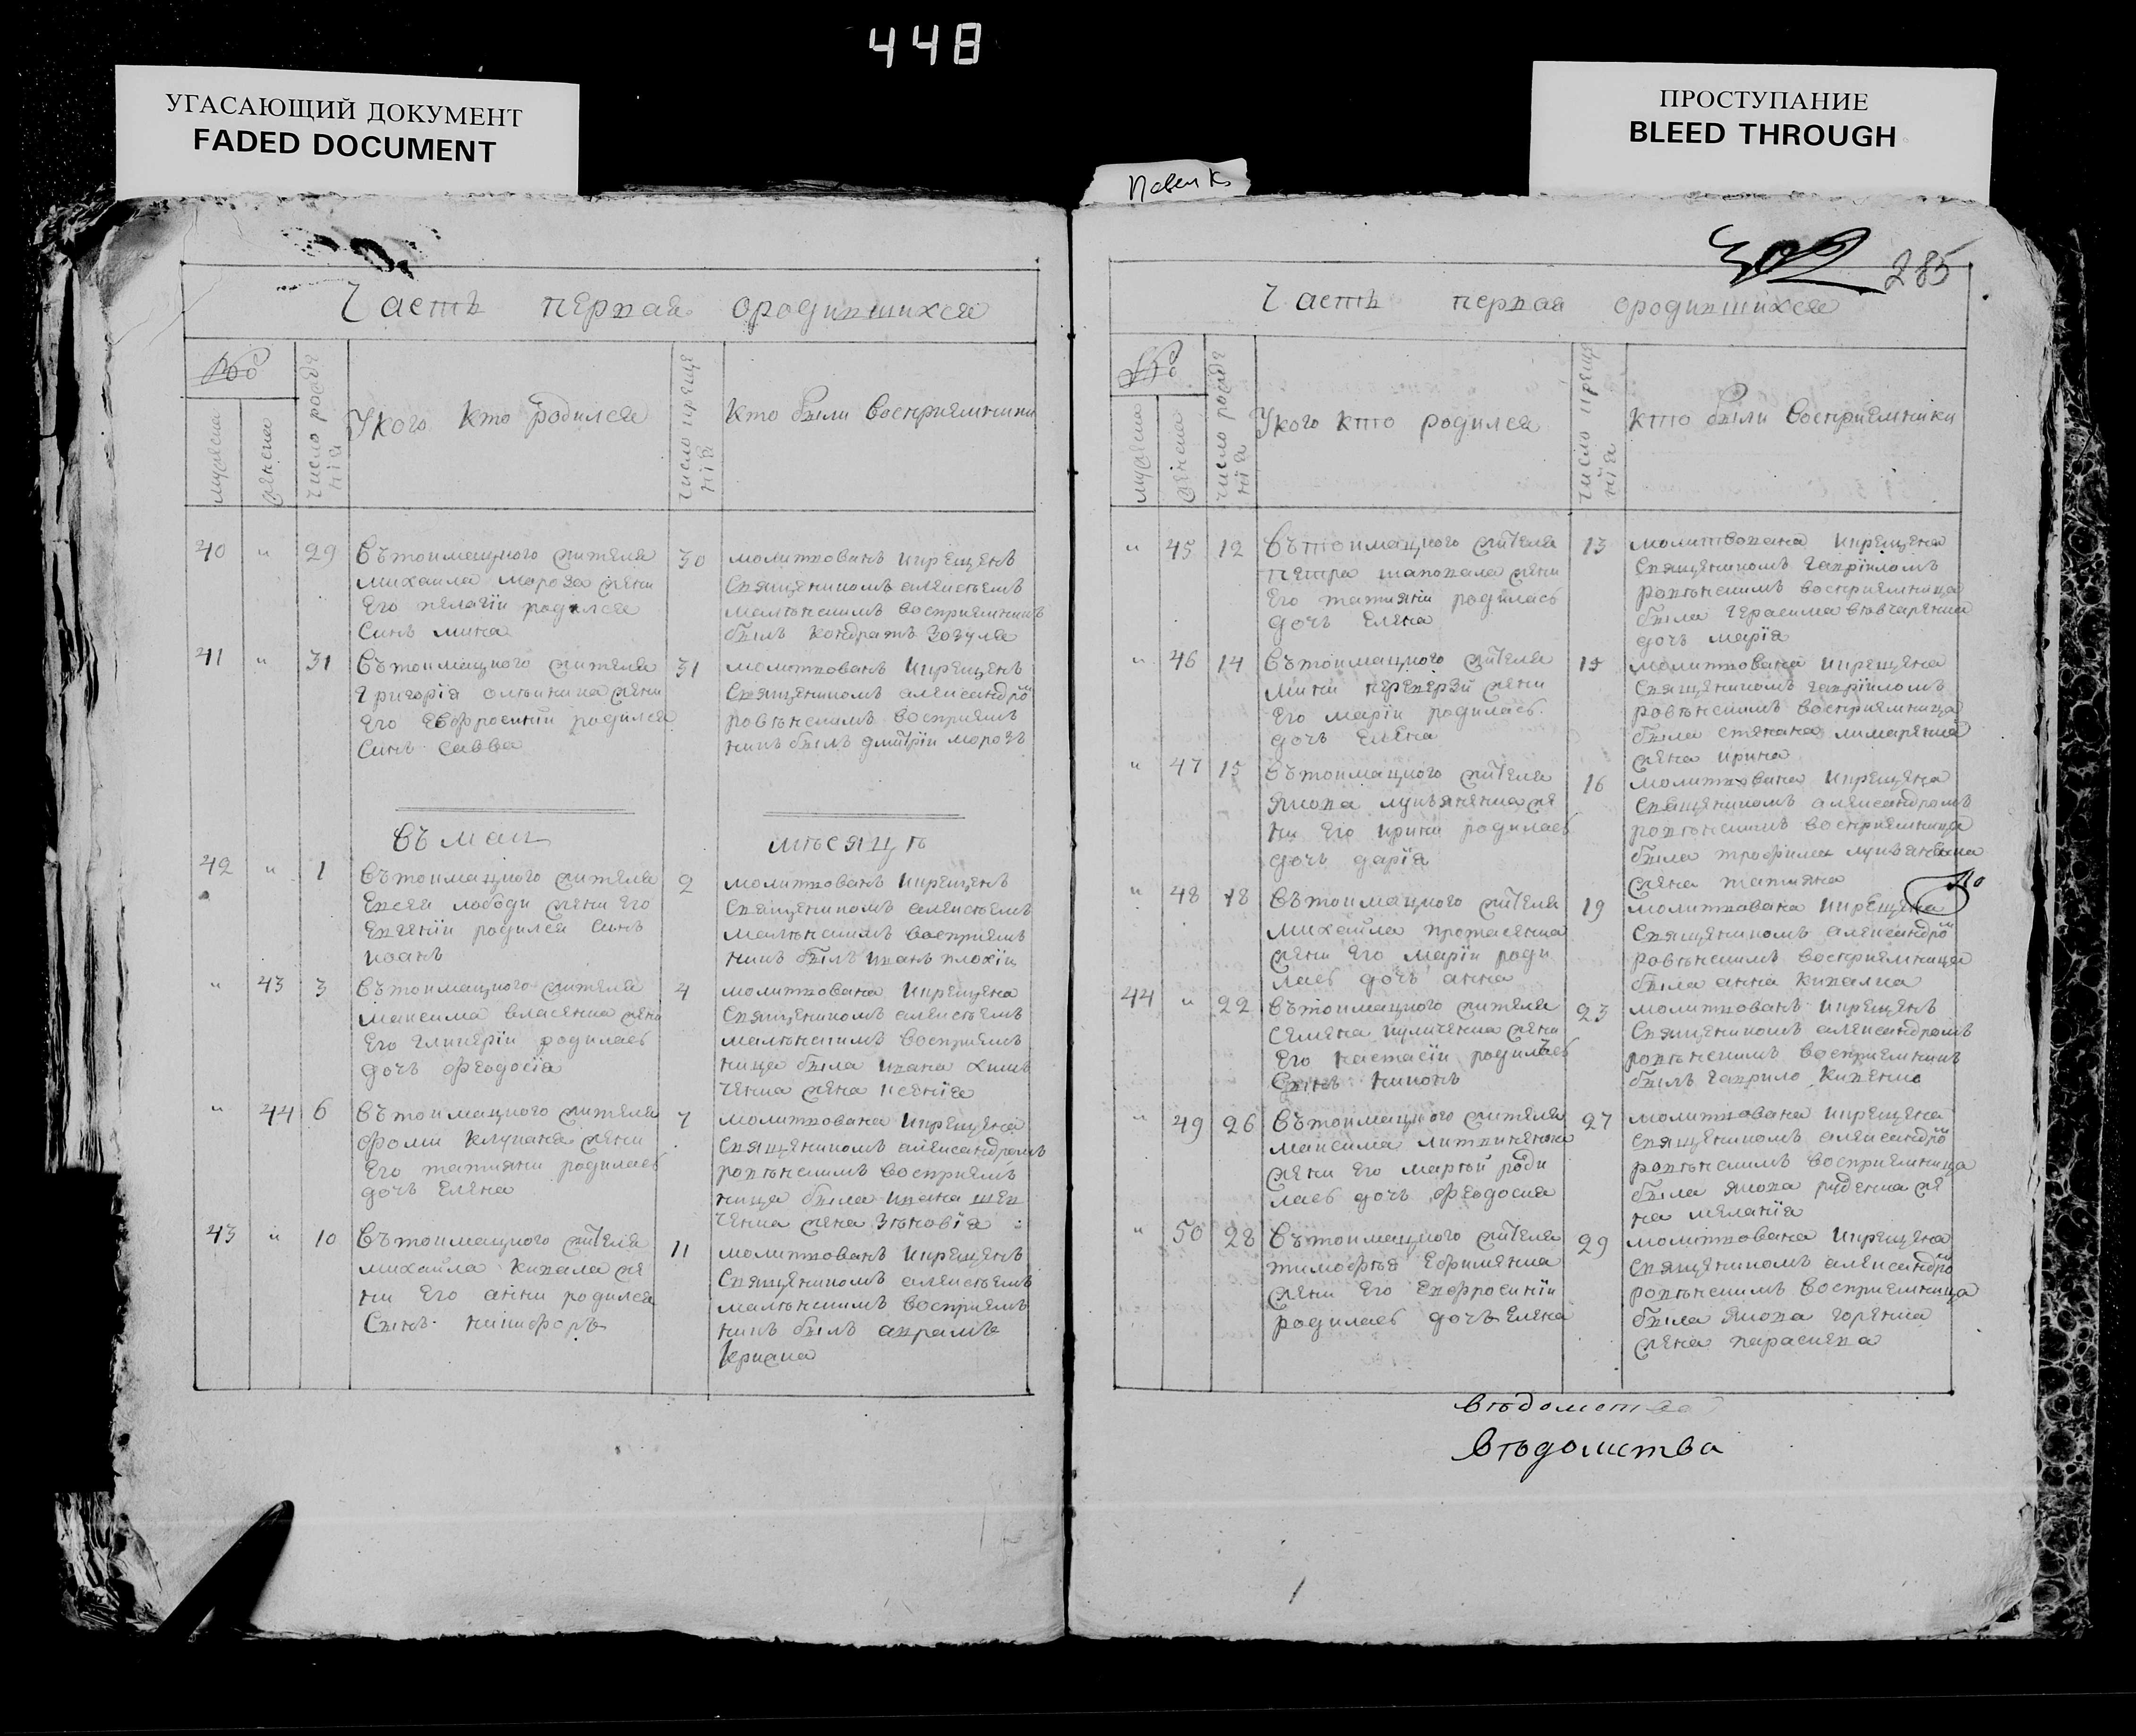 448
УГАСАЮЩИЙ ДОКУМЕНТ
FADED DOCUMENT
ПРОСТУПАНИЕ
BLEED THROUGH
302 285
Часть первая ородившихся
№
мужеска
женска
число рожде
нія
Укого кто родился
число креще
нія
кто были восприемники
40 " 29
Вътоимацкого жителя
михаила мороза жени
Его пелагіи родился
Синъ мина
30
молитвованъ икрещенъ
Священикомъ алексеемъ
малѣнскимъ восприемникъ
былъ кондратъ Зозуля
41 " 31
Вътоимацкого жителя
Григорія олѣиника жени
Его Евфросиніи родился
Синъ савва
31
молитвованъ икрещенъ
Священикомъ александрō
ровѣнскимъ восприем
никъ былъ дмитріи морозъ
Въ маи мѣсяцѣ
42 " 1
Вътоимацкого жителя
Евсея лободи жени Его
Евгеніи родился Синъ
иоанъ
2
молитвованъ икрещенъ
Священикомъ алексеемъ
малѣнскимъ восприем
никъ былъ иванъ плохіи
" 43 3
Вътоимацкого жителя
максима власенка жени
Его гликеріи родилась
дочъ феодосія
4
молитвована икрещена
Священикомъ алексеемъ
малѣнскимъ восприем
ница была ивана
ченка жена ксенія
" 44 6
Вътоимацкого жителя
фоми жени
Его татияни родилась
дочъ Елена
7
молитвована икрещена
Священикомъ александромъ
ровѣнскимъ восприем
ница была ивана шев
ченка жена Зѣновія
43 " 10
Вътоимацкого жителя
михаила кивала же
ни Его анни родился
Синъ никифоръ
11
молитвованъ икрещенъ
Священикомъ алексеемъ
малѣнскимъ восприем
никъ былъ аврамъ
Часть первая ородившихся
№
мужеска
женска
число рожде
нія
Укого кто родился
число креще
нія
кто были восприемники
" 45 12
Вътоимацкого жителя
петра шаповала жени
Его татияніи родилась
дочъ Елена
13
молитвована икрещена
Священикомъ гавріиломъ
ровѣнскимъ восприемница
была герасима вовчаренка
дочъ марія
" 46 14
Вътоимацкого жителя
мини перехерзи жени
Его маріи родилась
дочъ Елена
15
молитвована икрещена
Священикомъ гавріиломъ
ровѣнскимъ восприемница
была степана лимаренка
жена ирина
" 47 15
Вътоимацкого жителя
якова лукъяненка же
ни Его ирини родилась
дочъ дарія
16
молитвована икрещена
Священикомъ александромъ
ровѣнскимъ восприемница
была трофима
жена татияна
" 48 18
Вътоимацкого жителя
михайла протасенка
жени Его маріи роди
лась дочъ анна
19
молитвована икрещена
Священикомъ александрō
ровѣнскимъ восприемница
была анна кивалка
44 " 22
Вътоимацкого жителя
Семена куличенка жени
Его настасіи родился
Синъ никонъ
23
молитвованъ икрещенъ
Священикомъ александромъ
ровѣнскимъ восприемникъ
былъ гаврило
" 49 26
Вътоимацкого жителя
максима литвиненка
жени Его марѳи роди
лась дочъ феодосия
27
молитвована икрещена
Священикомъ александрō
ровѣнскимъ восприемница
была якова руденка же
на меланія
" 50 28
Вътоимацкого жителя
тимофея Ефименка
жени Его Евфросиніи
родилась дочъ Елена
29
молитвована икрещена
Священикомъ александрō
ровѣнскимъ восприемница
была якова горенка
жена параскева
вѣдомства
вѣдомства